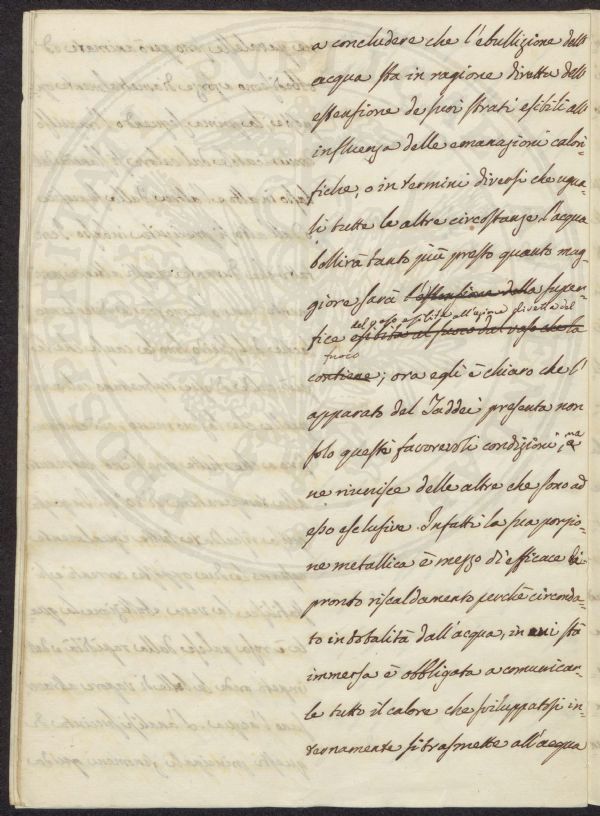 a concludere che l'ebullizione dell'
acqua sta in ragione diretta dell'
estensione de suoi strati esibiti all'
influenza delle emanazioni calori-
fiche, o in termini diversi che ugua-
li tutte le altre circostanze l'acqua
bollirà tanto più presto quanto mag-
giore sarà l'estensione della superfi-
del vaso esibita all'azione diretta del
fice esibita al fuoco del vaso che la
fuoco
contiene; ora egli è chiaro che l'
apparato del Taddei presenta non
solo queste favorevoli condizioni, ma
ne riunisce delle altre che sono ad
esso esclusive. Infatti la sua porzio-
ne metallica è mezzo di efficace di
pronto riscaldamento perchè circonda-
to in totalità dall'acqua, in cui stà
immersa è obbligata a comunicar-
le tutto il calore che sviluppatosi in-
ternamente si trasmette all'acqua